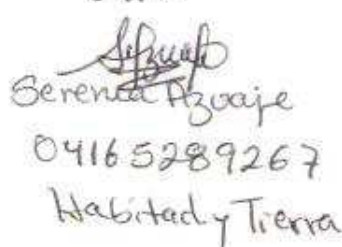 Serenia Azuaje
04165289267
Habitad y Tierra